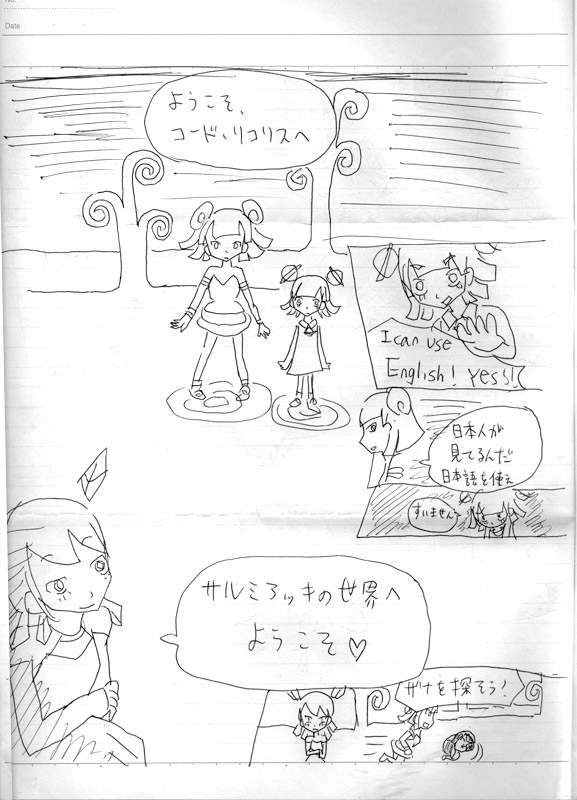 No.
Date
ようこそ、
コード、リコリスへ
I can use
English! Yes!!
日本人が
見てるんだ
日本語を使え
すいません
サルミアッキの世界へ
ようこそ♡
ザナを探そう!